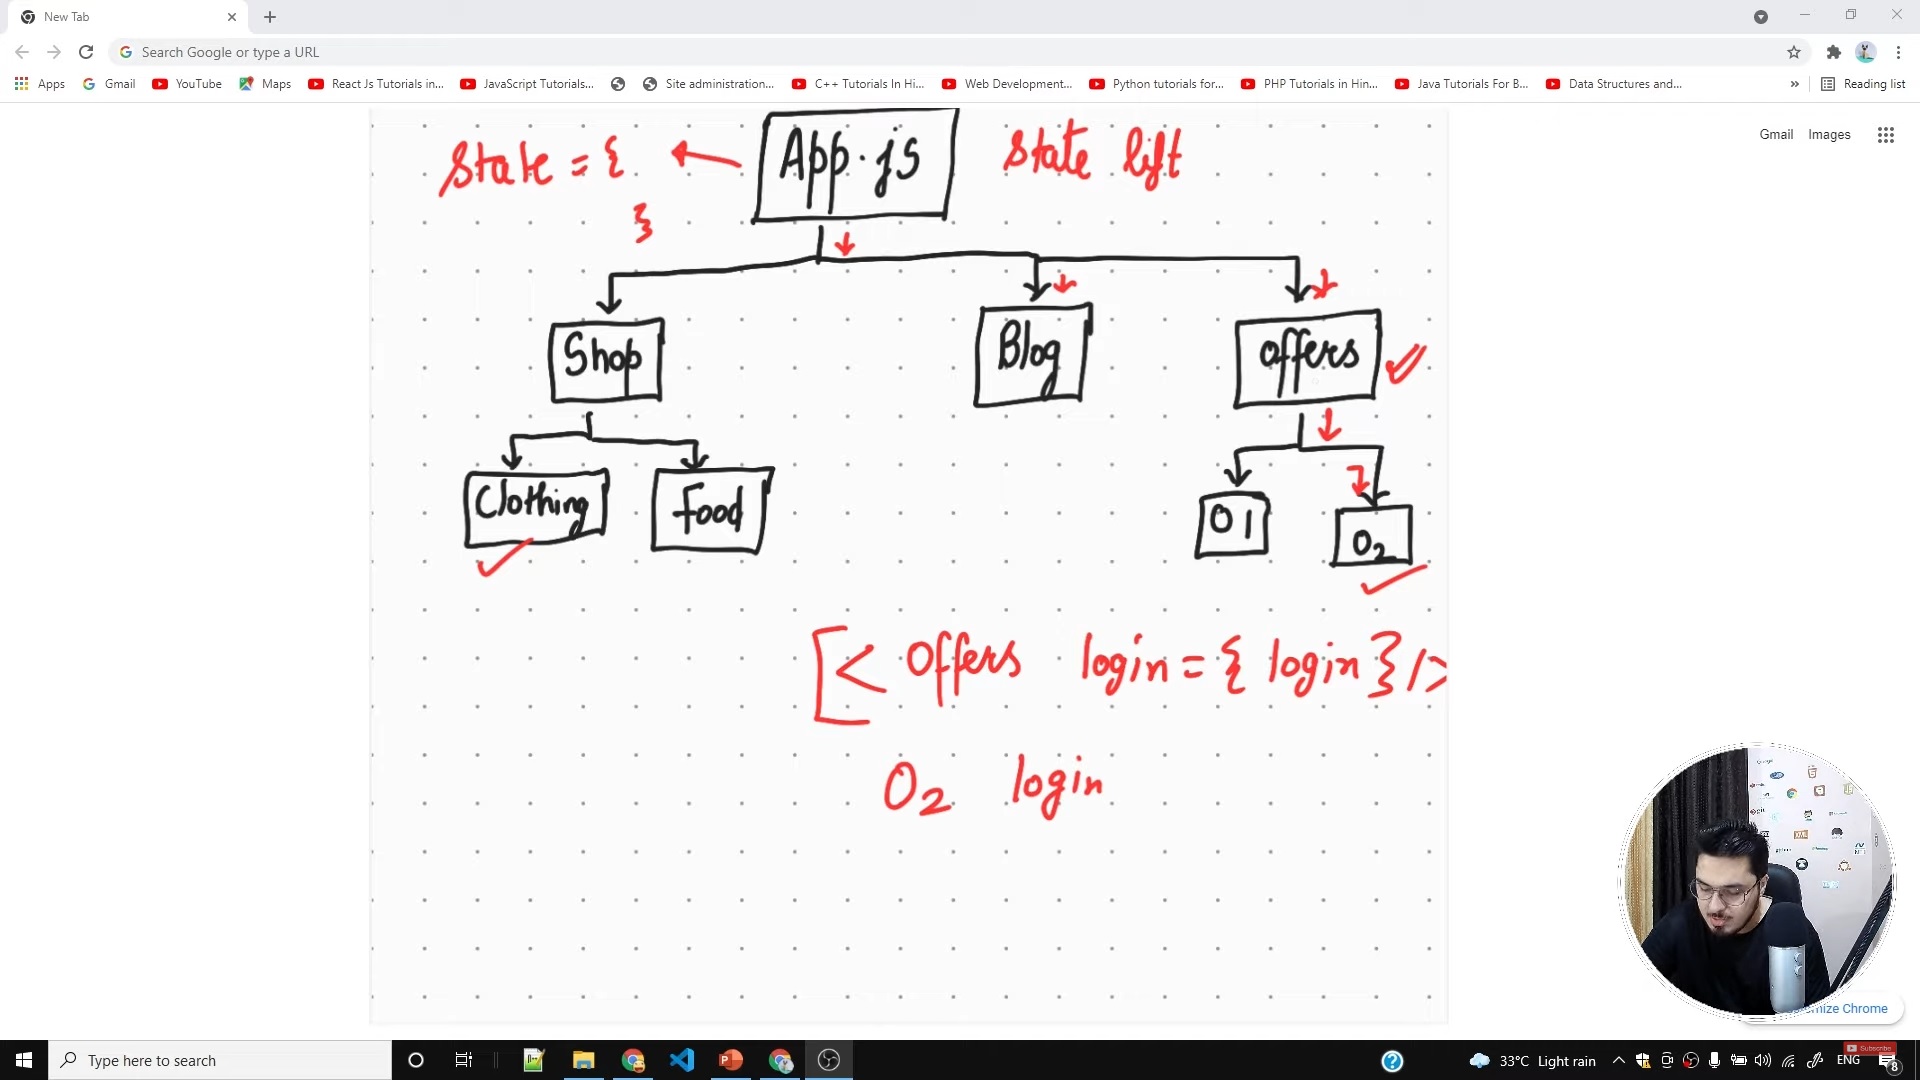 New Tab
Search Google or type a URL
Apps Gmail YouTube Maps React Js Tutorials in... JavaScript Tutorials... Site administration... C++ Tutorials In Hi... Web Development... Python tutorials for... PHP Tutorials in Hin... Java Tutorials For B... Data Structures and... » Reading list
Gmail Images
State = { App.js State lift
}
Shop Blog offers
Clothing Food O1 O2
[< Offers login = { login } />
O2 login
mize Chrome
Type here to search
33°C Light rain ENG
Subscribe
8